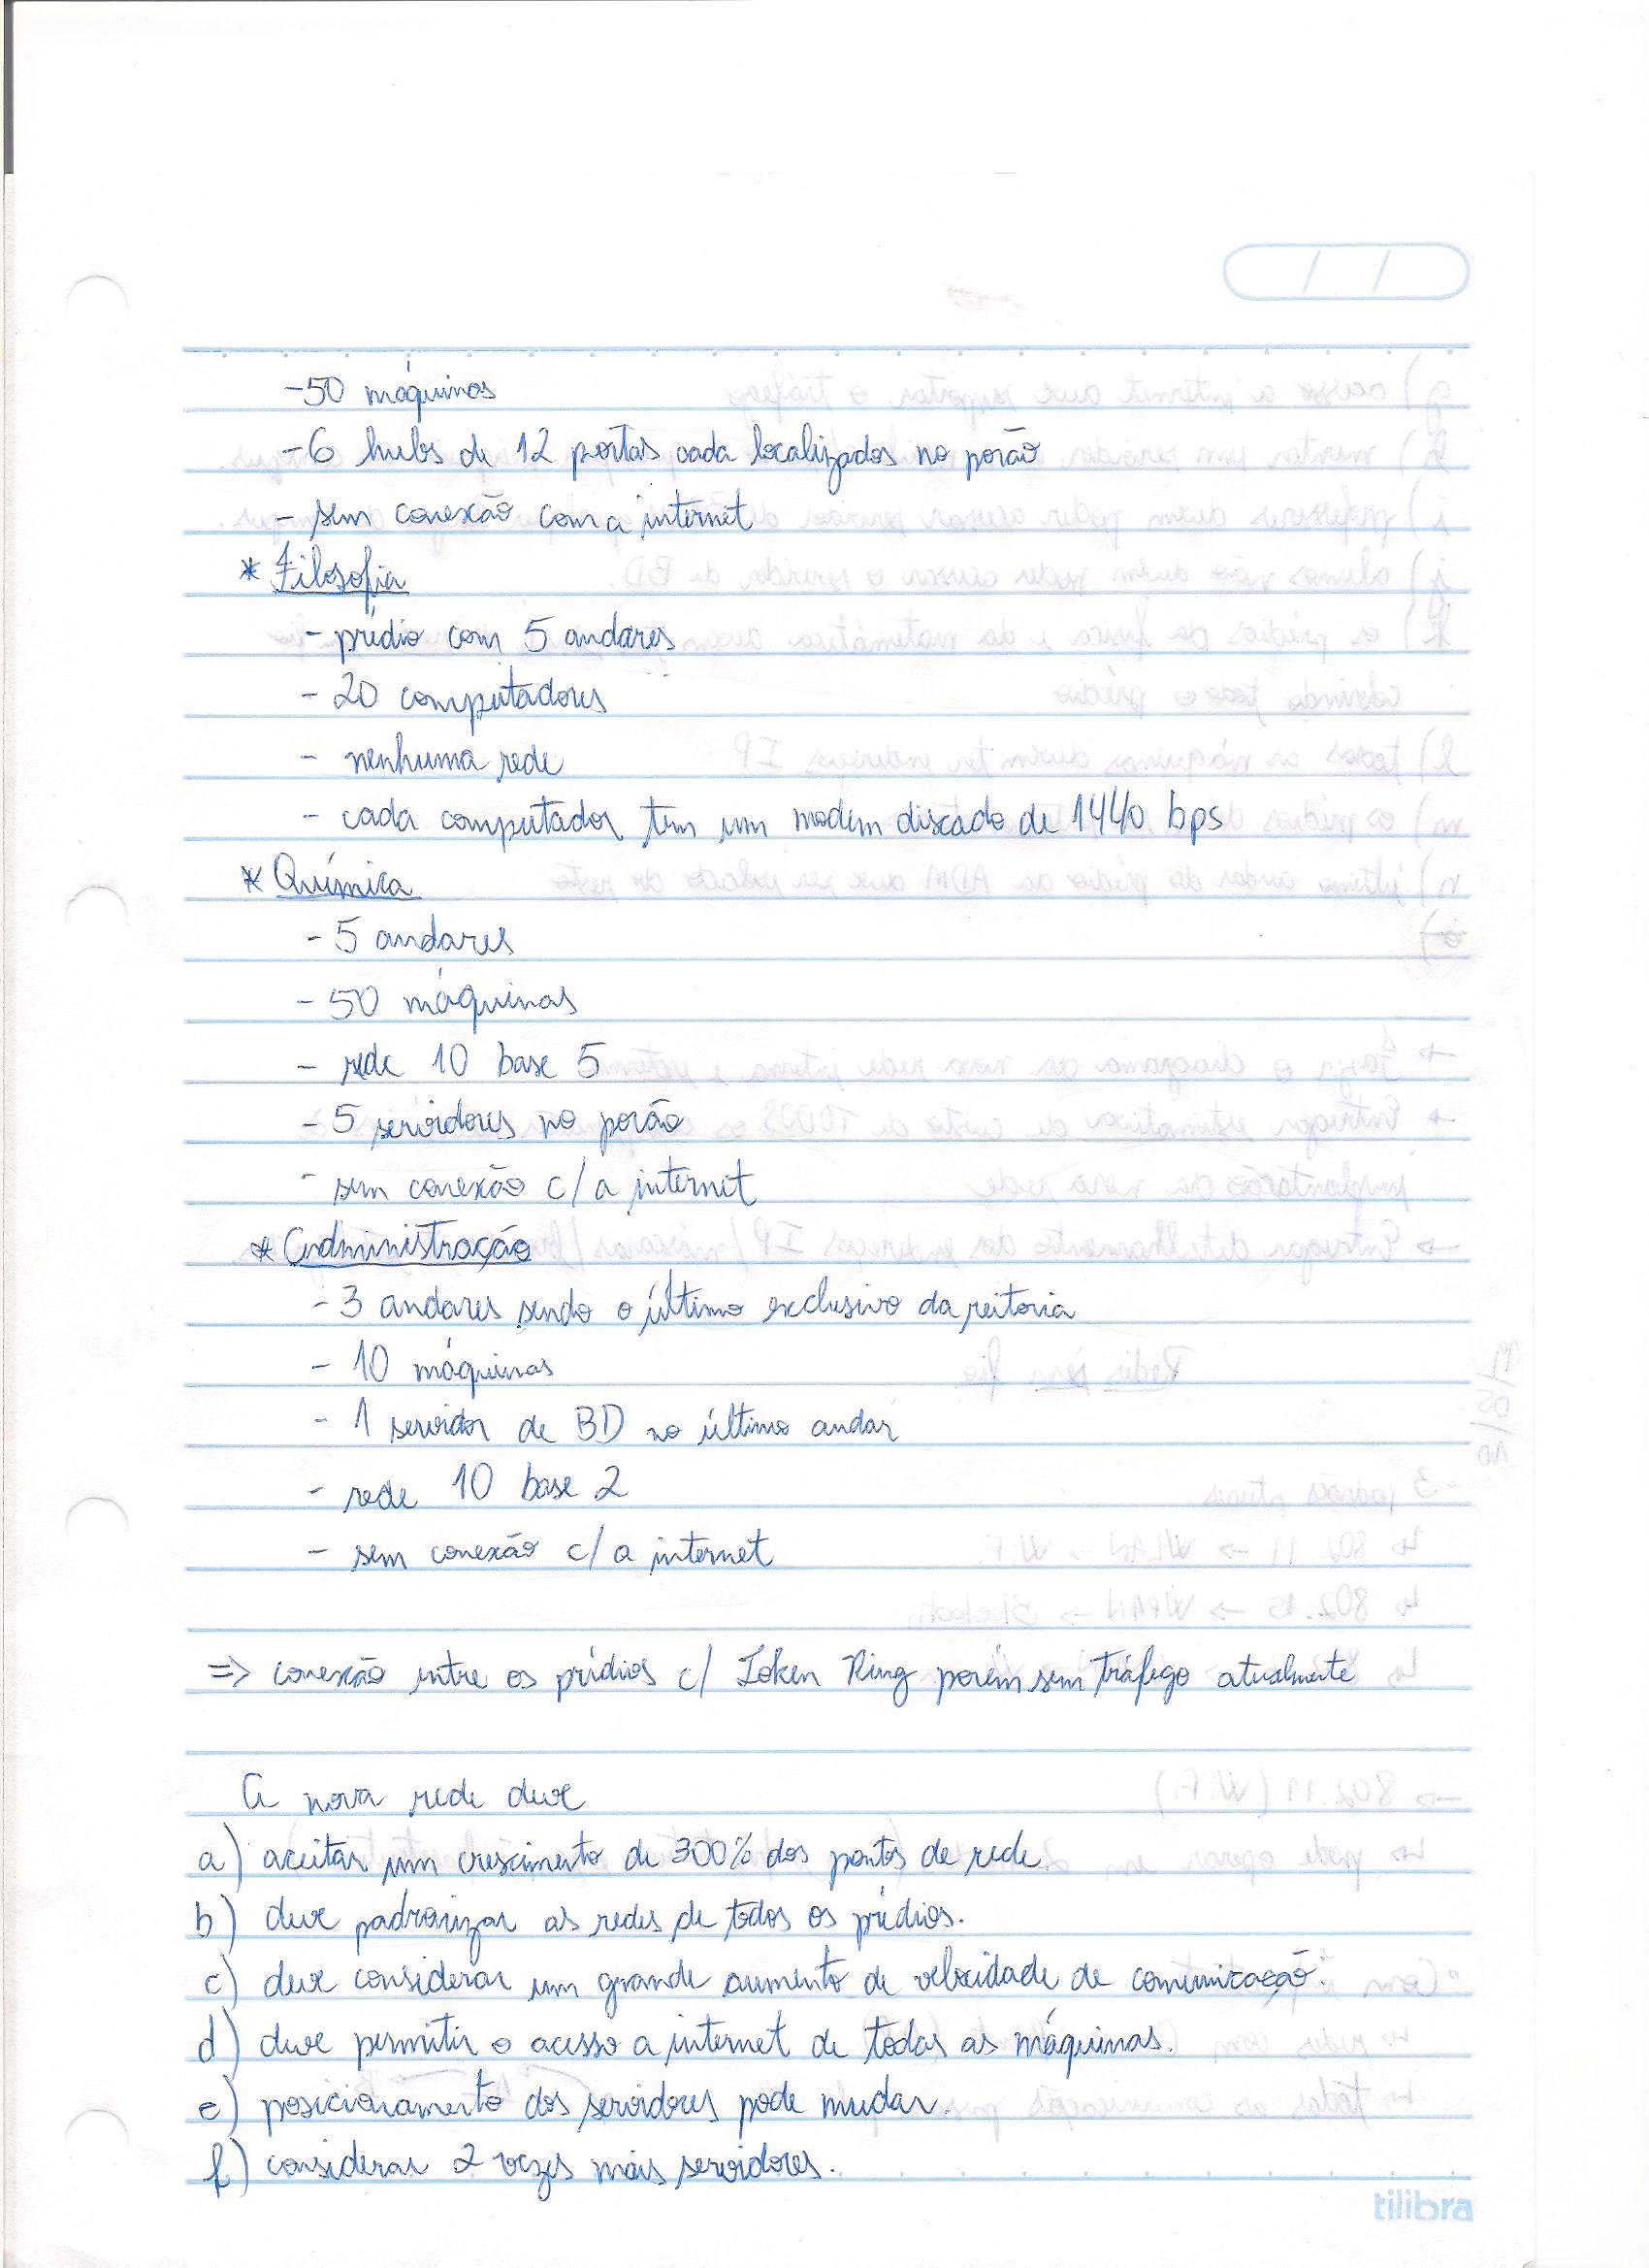 -50 máquinas
-6 hubs de 12 portas cada localizados no porão
- sem conexão com a internet
* Filosofia
- prédio com 5 andares
- 20 computadores
- nenhuma rede
- cada computador tem um modem discado de 1440 bps
* Química
- 5 andares
- 50 máquinas
- rede 10 base 5
- 5 servidores no porão
- sem conexão c/ a internet
* Administração
- 3 andares sendo o último exclusivo da reitoria
- 10 máquinas
- 1 servidor de BD no último andar
- rede 10 base 2
- sem conexão c/ a internet
=> conexão entre os prédios c/ Token Ring porém sem tráfego atualmente
A nova rede deve
a) aceitar um crescimento de 300% dos pontos de rede
b) deve padronizar as redes de todos os prédios.
c) deve considerar um grande aumento de velocidade de comunicação.
d) deve permitir o acesso a internet de todas as máquinas.
e) posicionamento dos servidores pode mudar.
f) considerar 2 vezes mais servidores.
tilibra